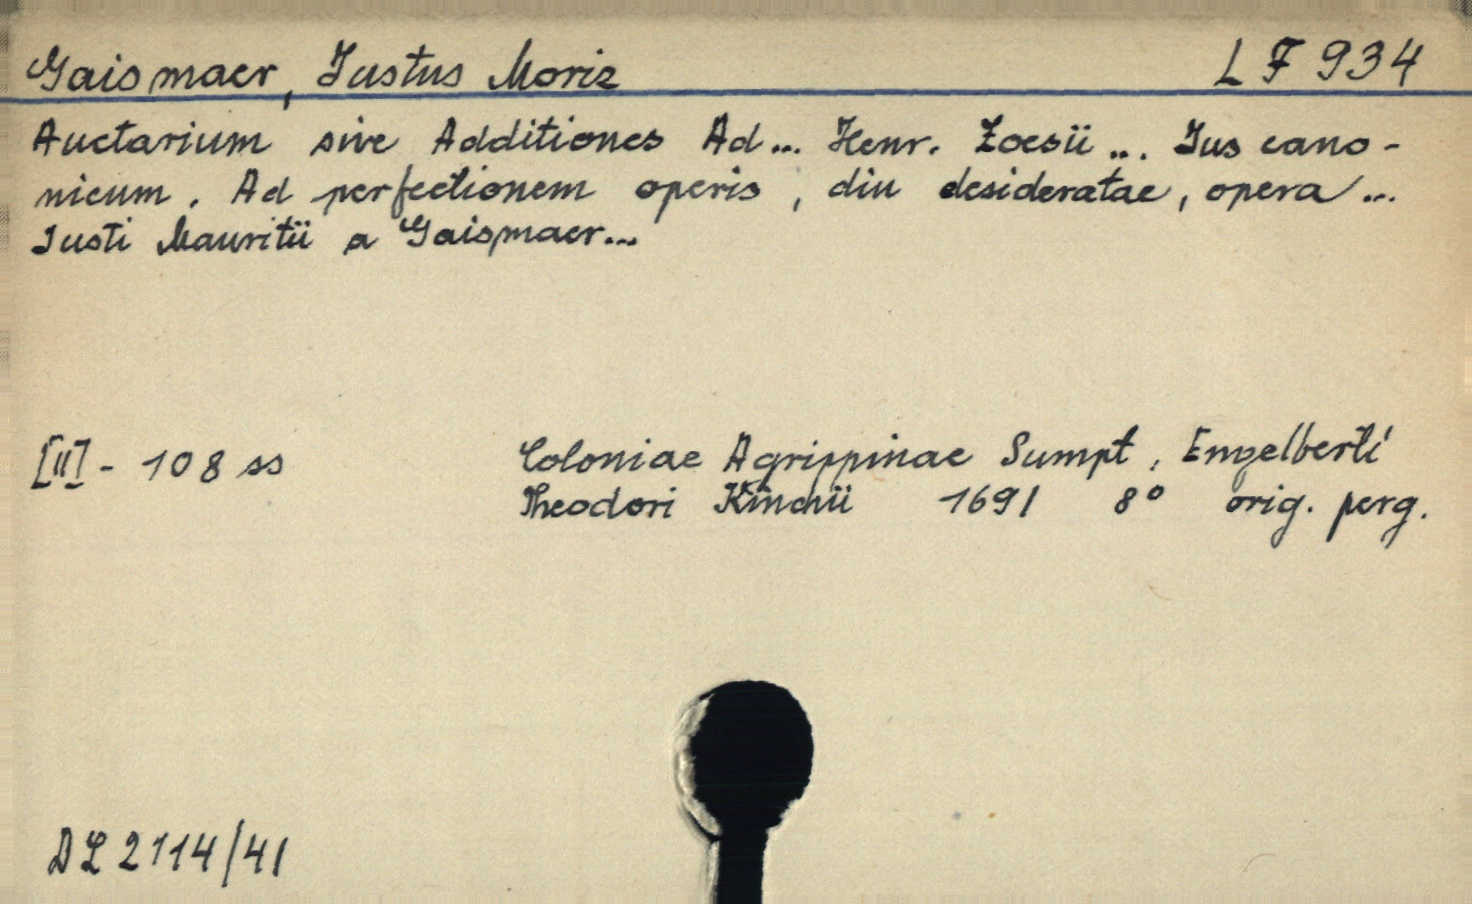 Gaismaer, Justus Moriz LF 934
Auctarium sive Additiones Ad... Henr. Zoesii ... Jus cano-
nicum. Ad perfectionem operis, diu desideratae, opera ...
Justi Mauritii a Gaismaer...
[II] - 108 ss Coloniae Agrippinae Sumpt. Engelberti
Theodori Kinchii 1691 8° orig. perg.
DL 2114/41